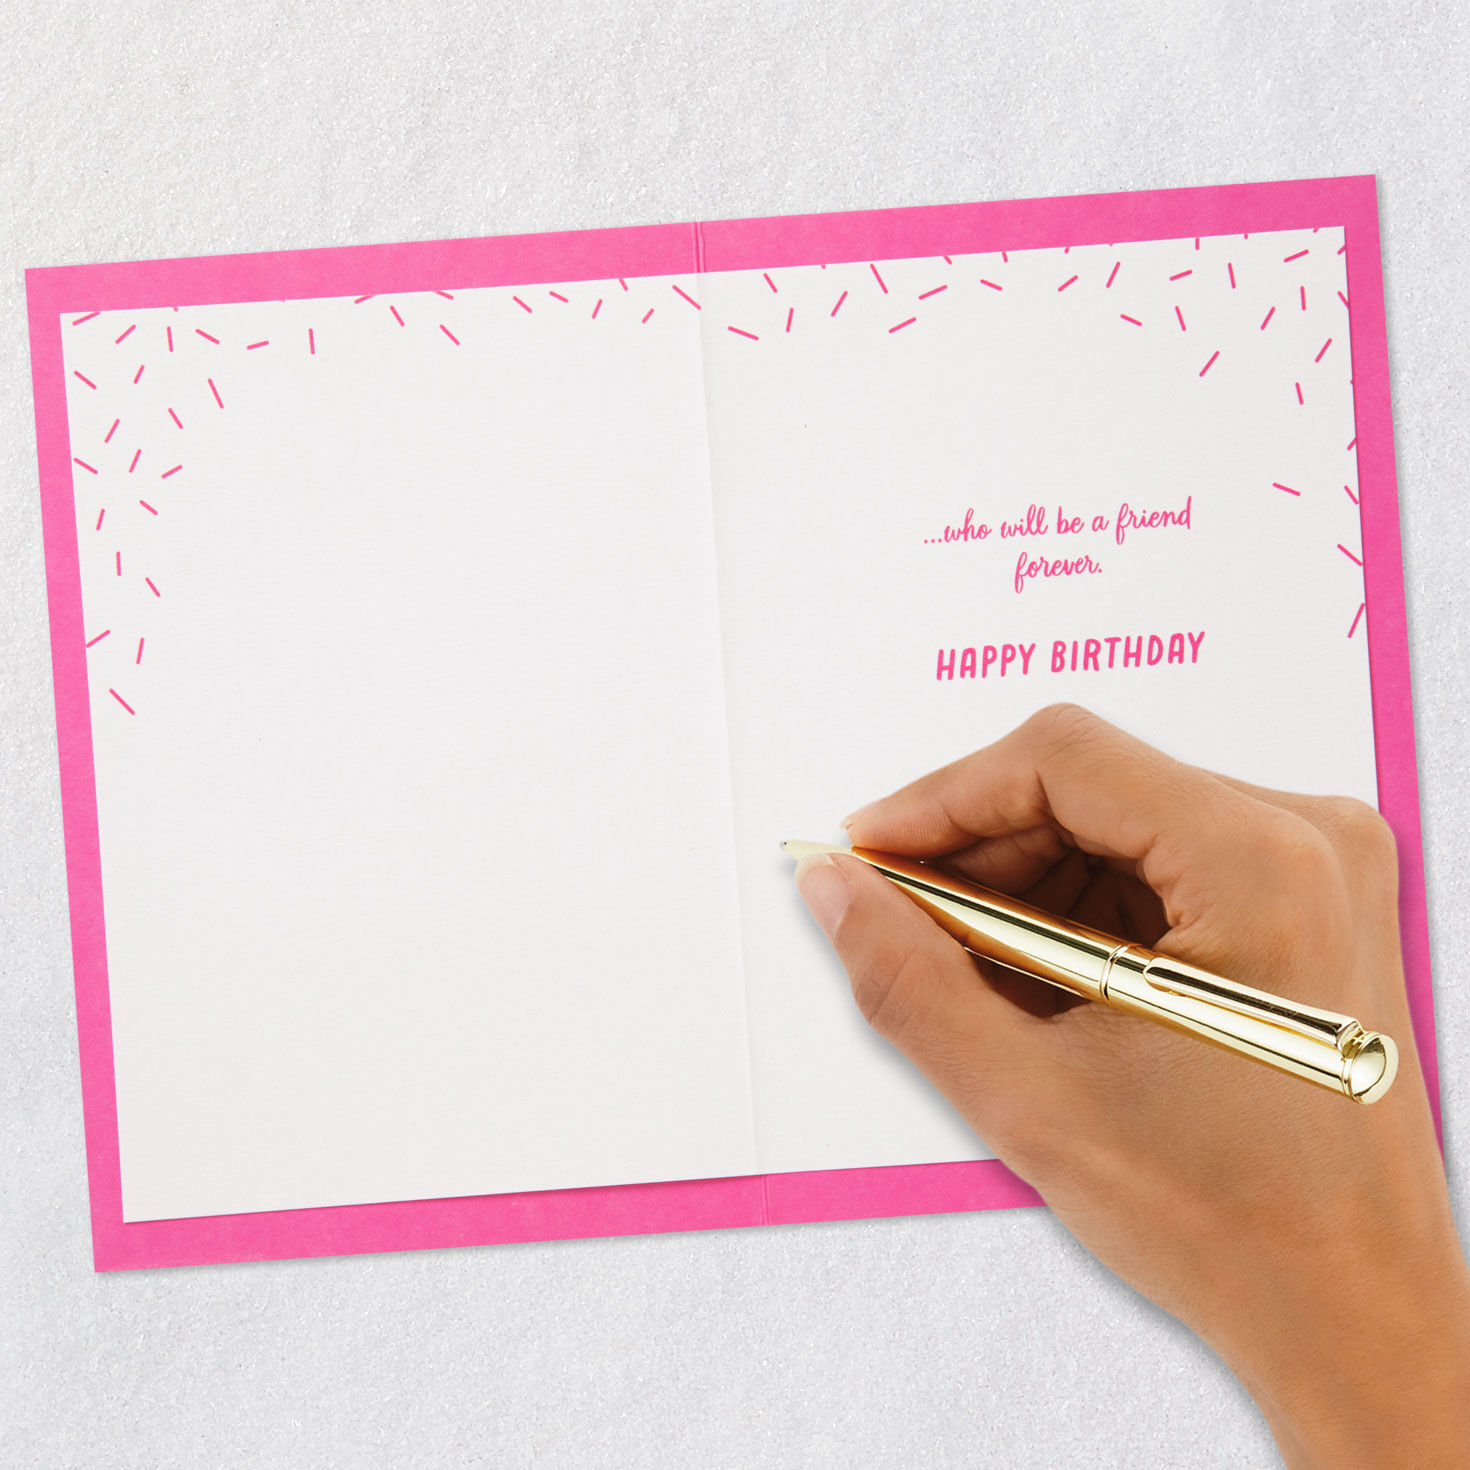 ...who will be a friend
forever.
HAPPY BIRTHDAY